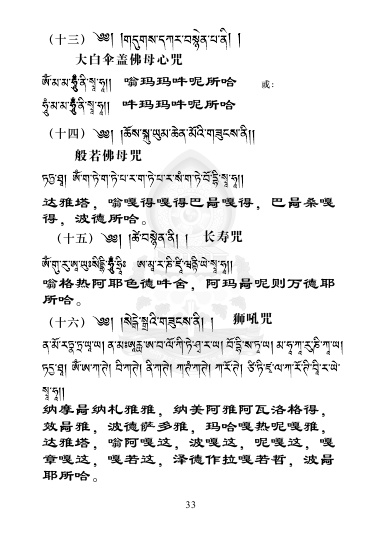 （十三）༄༅། །གདུགས་དཀར་བསྙེན་པ་ནི། །
大白伞盖佛母心咒
ༀ་མ་མ་ཧཱུྃ་ནི་སྭཱ་ཧཱ།། 嗡玛玛吽呢所哈 或:
ཧཱུྃ་མ་མ་ཧཱུྃ་ནི་སྭཱ་ཧཱ།། 吽玛玛吽呢所哈
（十四）༄༅། །ཆོས་སྐུ་ཡུམ་ཆེན་མོའི་གཟུངས་ནི།།
般若佛母咒
ཏདྱ་ཐཱ། ༀ་ག་ཏེ་ག་ཏེ་པ་ར་ག་ཏེ་པ་ར་སཾ་ག་ཏེ་བོ་དྷི་སྭཱ་ཧཱ།།
达雅塔，嗡嘎得嘎得巴曷嘎得，巴曷桑嘎
得，波德所哈。
（十五）༄༅། །ཚེ་བསྙེན་ནི། ། 长寿咒
ༀ་གུ་རུ་ཨཱ་ཡུཿསིདྡྷི་ཧཱུྃ་ཧྲཱིཿ ཨ་མཱ་ར་ཎི་ཛཱི་ཝནྟི་ཡེ་སྭཱ་ཧཱ།།
嗡格热阿耶色德吽舍，阿玛曷呢则万德耶
所哈。
（十六）༄༅། །སེངྒེ་སྒྲའི་གཟུངས་ནི། ། 狮吼咒
ན་མོ་རཏྣ་ཏྲ་ཡཱ་ཡ། ན་མཿཨཱརྱ་ཨ་བ་ལོ་ཀི་ཏེ་ཤྭ་ར་ཡ། བོ་དྷི་ས་ཏྭ་ཡ། མ་ཧཱ་ཀཱ་རུ་ཎི་ཀཱ་ཡ།
纳摩曷纳札雅雅，纳美阿雅阿瓦洛格得，
效曷雅，波德萨多雅，玛哈嘎热呢嘎雅，
达雅塔，嗡阿嘎这，波嘎这，呢嘎这，嘎
章嘎这，嘎若这，泽德作拉嘎若哲，波曷
耶所哈。
33